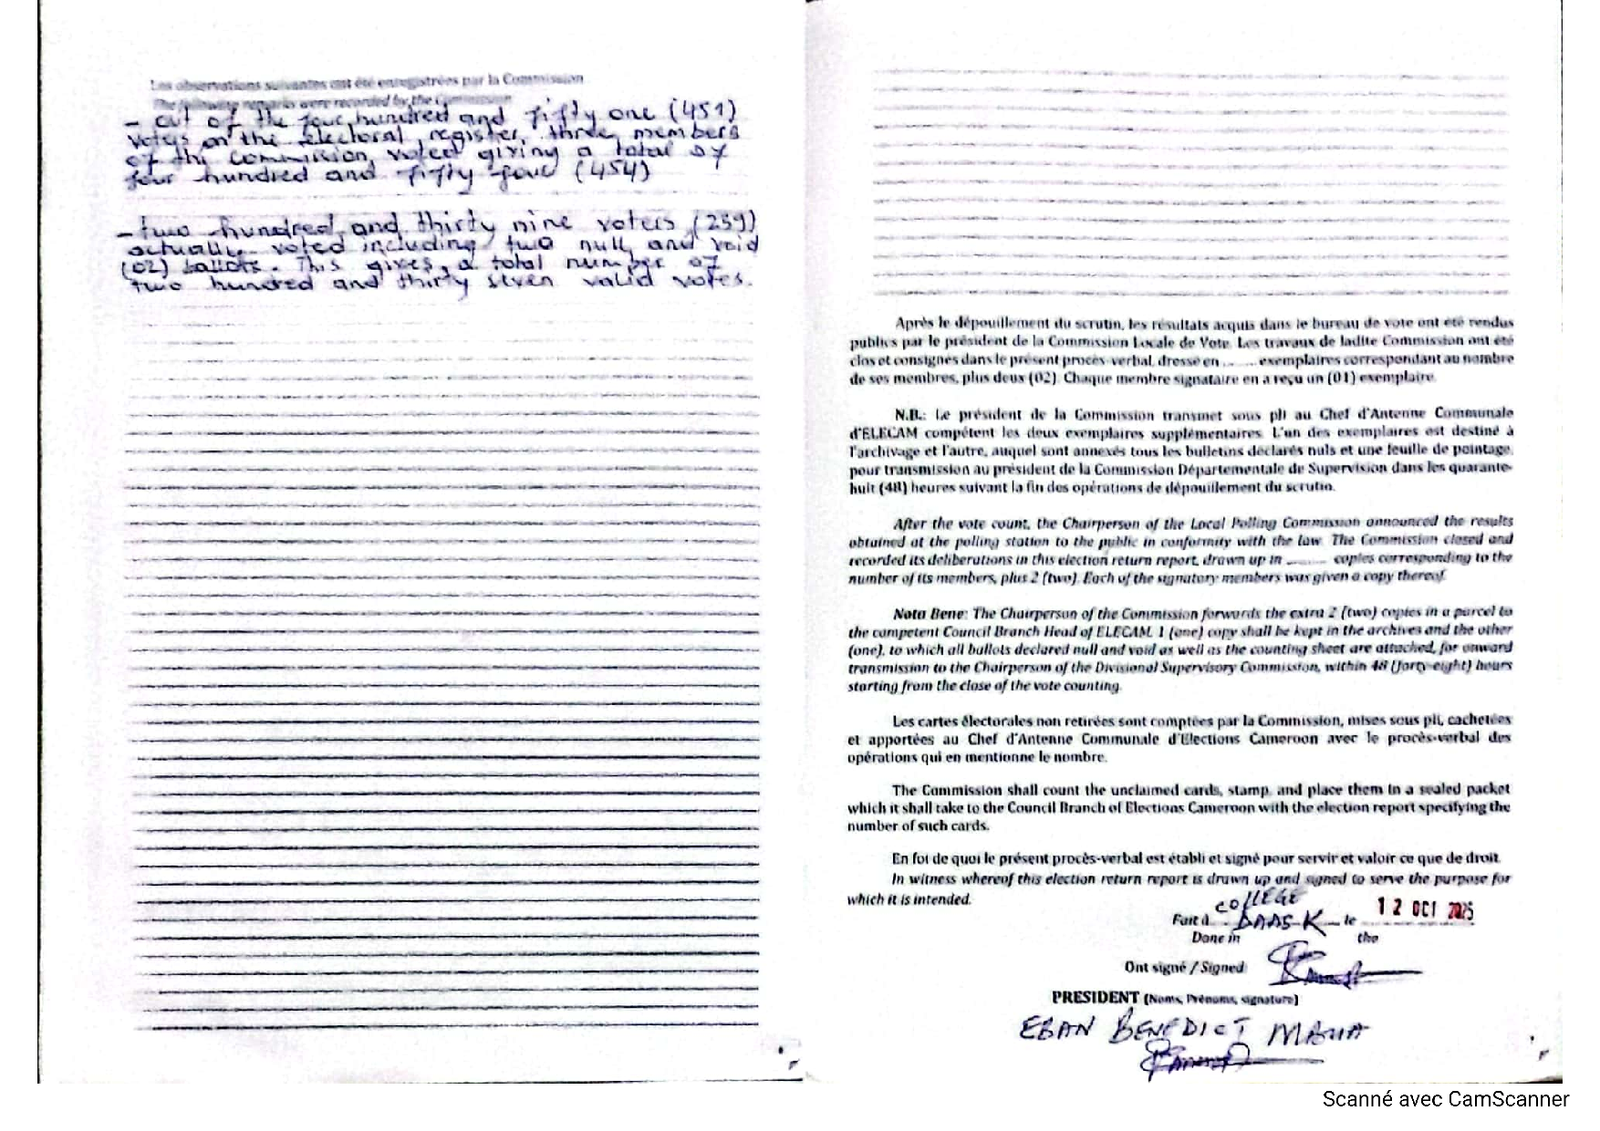 Les observations suivantes ont été enregistrées par la Commission
The following remarks were recorded by the Commission
- out of the four hundred and fifty one (451)
voters on the electoral register, three members
of the commission voted giving a total of
four hundred and fifty four (454)
- two hundred and thirty nine voters (239)
actually voted including two null and void
(02) ballots. This gives a total number of
two hundred and thirty seven valid votes.
Après le dépouillement du scrutin, les résultats acquis dans le bureau de vote ont été rendus
publics par le président de la Commission Locale de Vote. Les travaux de ladite Commission ont été
clos et consignés dans le présent procès-verbal, dressé en ......... exemplaires correspondant au nombre
de ses membres, plus deux (02). Chaque membre signataire en a reçu un (01) exemplaire.
N.B.: Le président de la Commission transmet sous pli au Chef d'Antenne Communale
d'ELECAM compétent les deux exemplaires supplémentaires. L'un des exemplaires est destiné à
l'archivage et l'autre, auquel sont annexés tous les bulletins déclarés nuls et une feuille de pointage,
pour transmission au président de la Commission Départementale de Supervision dans les quarante-
huit (48) heures suivant la fin des opérations de dépouillement du scrutin.
After the vote count, the Chairperson of the Local Polling Commission announced the results
obtained at the polling station to the public in conformity with the law. The Commission closed and
recorded its deliberations in this election return report, drawn up in ......... copies corresponding to the
number of its members, plus 2 (two). Each of the signatory members was given a copy thereof.
Nota Bene: The Chairperson of the Commission forwards the extra 2 (two) copies in a parcel to
the competent Council Branch Head of ELECAM. 1 (one) copy shall be kept in the archives and the other
(one), to which all ballots declared null and void as well as the counting sheet are attached, for onward
transmission to the Chairperson of the Divisional Supervisory Commission, within 48 (forty-eight) hours
starting from the close of the vote counting.
Les cartes électorales non retirées sont comptées par la Commission, mises sous pli, cachetées
et apportées au Chef d'Antenne Communale d'Elections Cameroon avec le procès-verbal des
opérations qui en mentionne le nombre.
The Commission shall count the unclaimed cards, stamp, and place them in a sealed packet
which it shall take to the Council Branch of Elections Cameroon with the election report specifying the
number of such cards.
En foi de quoi le présent procès-verbal est établi et signé pour servir et valoir ce que de droit.
In witness whereof this election return report is drawn up and signed to serve the purpose for
which it is intended.
COLLEGE
Fait à DAAS-K le 12 OCT 2025
Done in the
Ont signé / Signed
PRESIDENT (Noms, Prénoms, signature)
EBAN BENEDICT
Scanné avec CamScanner